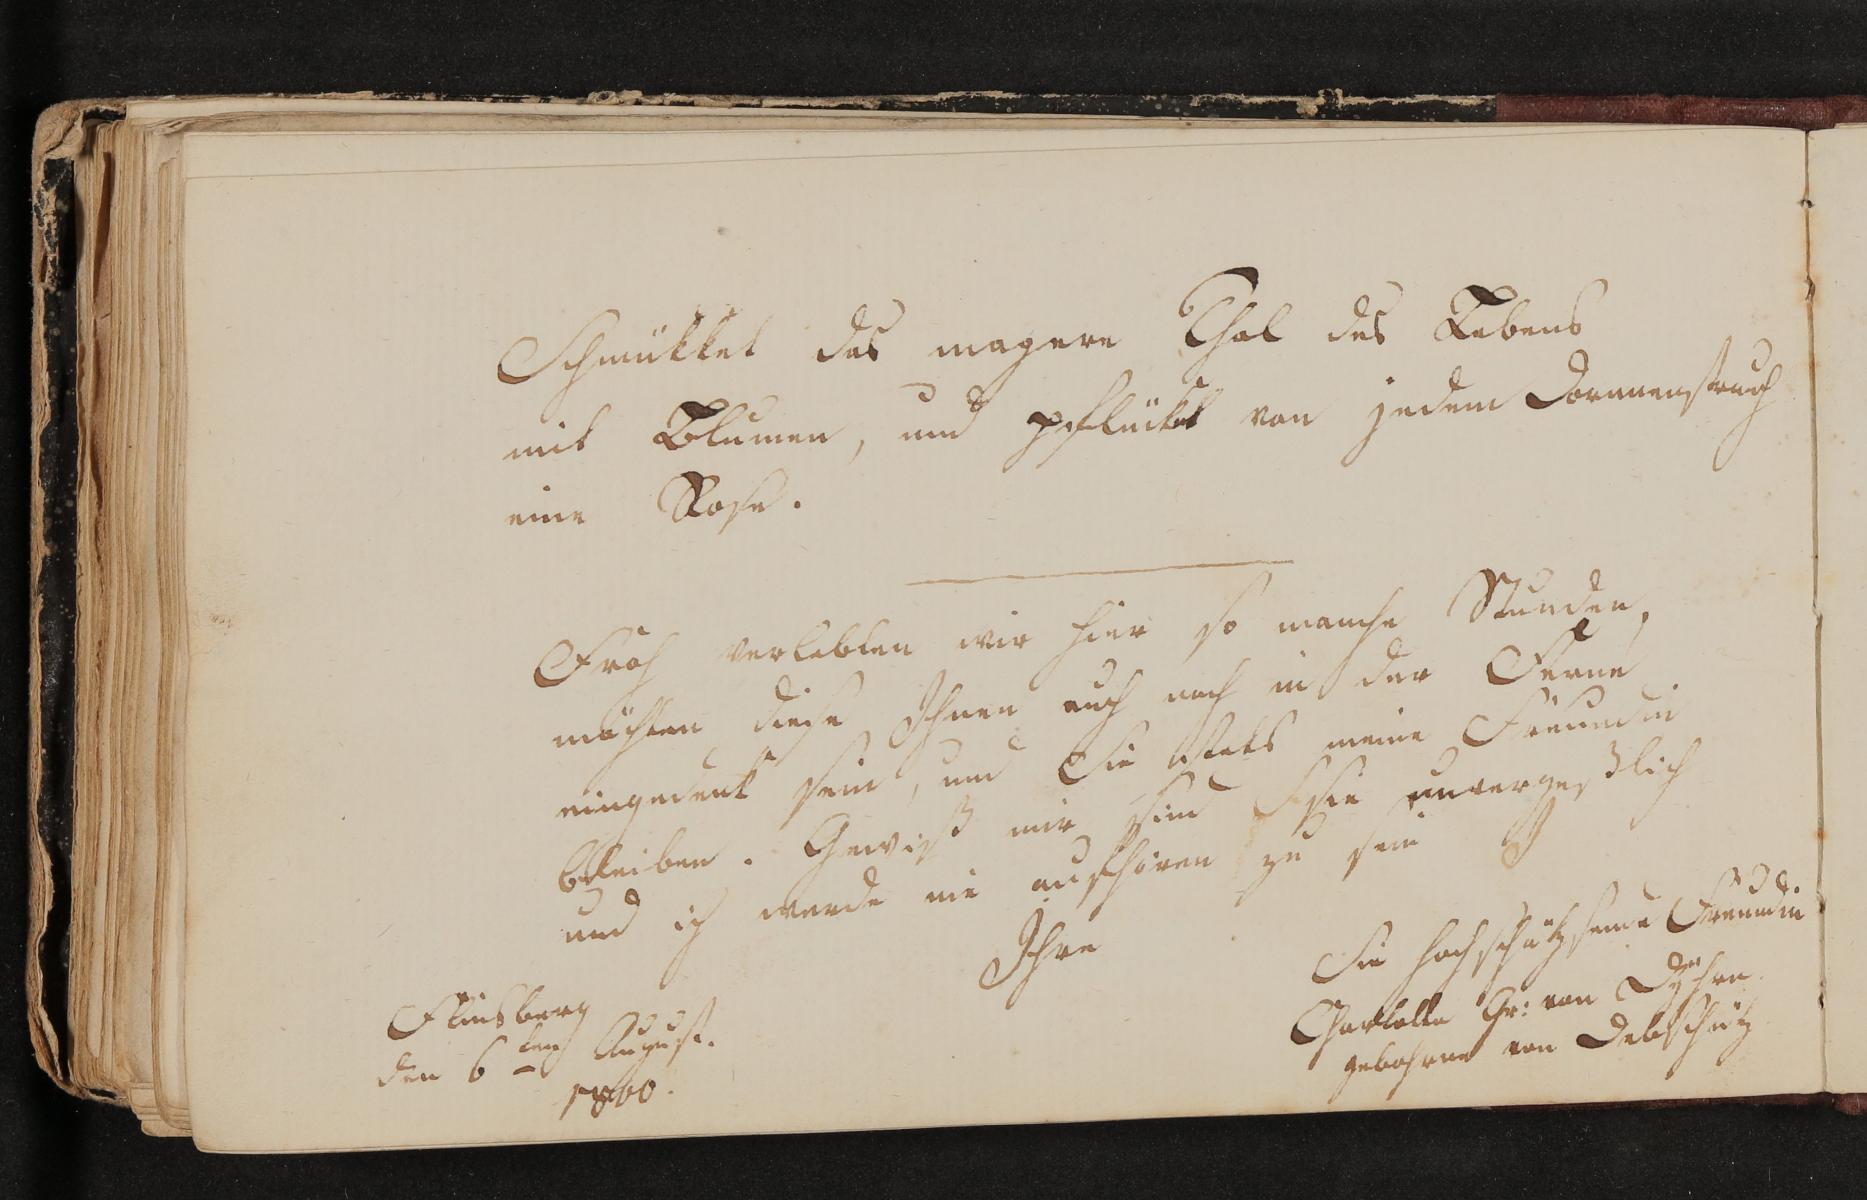 Schmükket das magere Thal des Lebens
mit Blumen, und pflückt von jedem Dornenstrauch
eine Rose.
Froh verlebten wir hier so manche Stunden,
möchten diese Ihnen auch noch in der Ferne
eingedenk sein, und Sie stets meine Freundin
bleiben. Gewiß mir sind Sie unvergeßlich
und ich werde nie aufhören zu sein
Ihre
Sie hochschätzende Freundin
Charlotte Gr: von Dÿhrn
gebohrne von Debschütz
Flinsberg
den 6ten August.
1800.